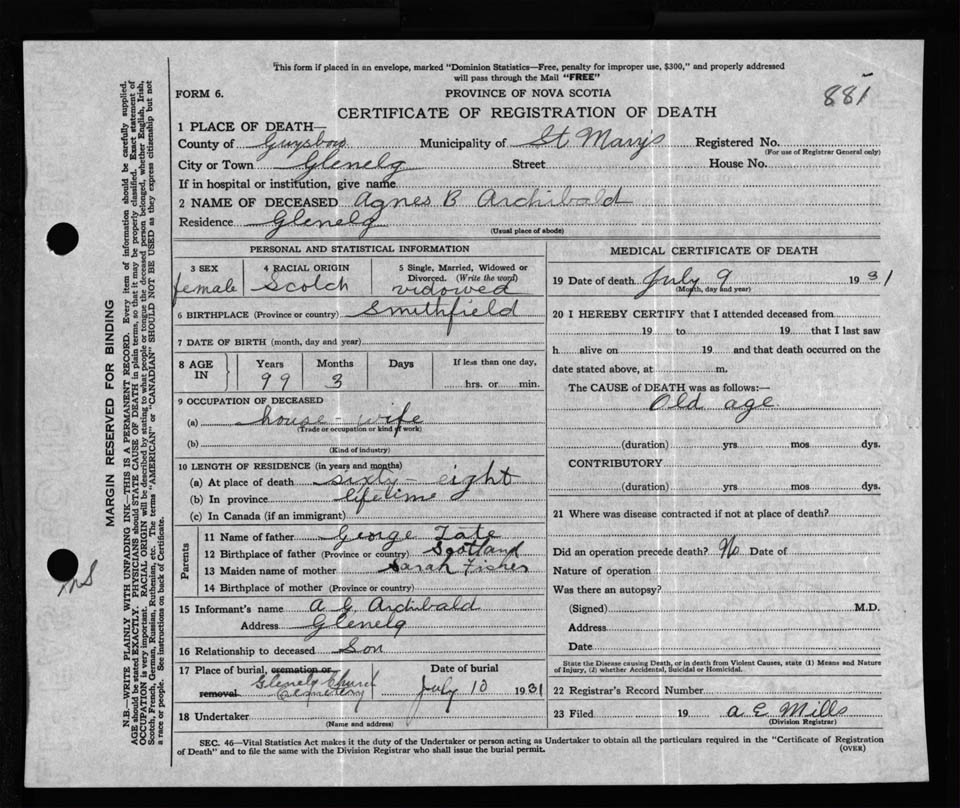 This form if placed in an envelope, marked "Dominion Statistics—Free, penalty for improper use, $300," and properly addressed
will pass through the Mail "FREE"
FORM 6.
PROVINCE OF NOVA SCOTIA
881
CERTIFICATE OF REGISTRATION OF DEATH
1 PLACE OF DEATH—
County of Guysboro Municipality of St Mary's Registered No.
(For use of Registrar General only)
City or Town Glenelg Street House No.
If in hospital or institution, give name
2 NAME OF DECEASED Agnes B Archibald
Residence Glenelg
(Usual place of abode)
PERSONAL AND STATISTICAL INFORMATION
3 SEX
female
4 RACIAL ORIGIN
Scotch
5 Single, Married, Widowed or
Divorced. (Write the word)
vidowed
6 BIRTHPLACE (Province or country) Smithfield
7 DATE OF BIRTH (month, day and year)
8 AGE
IN
Years
99
Months
3
Days
If less than one day,
hrs. or min.
9 OCCUPATION OF DECEASED
(a) house-wife
(Trade or occupation or kind of work)
(b)
(Kind of industry)
10 LENGTH OF RESIDENCE (in years and months)
(a) At place of death sixty-eight
(b) In province lifetime
(c) In Canada (if an immigrant)
Parents
11 Name of father George Tate
12 Birthplace of father (Province or country) Scotland
13 Maiden name of mother Sarah Fisher
14 Birthplace of mother (Province or country)
15 Informant's name A G Archibald
Address Glenelg
16 Relationship to deceased Son
17 Place of burial, cremation or
removal Glenelg Church
Cemetery
Date of burial
July 10 1931
18 Undertaker
(Name and address)
MEDICAL CERTIFICATE OF DEATH
19 Date of death July 9 1931
(Month, day and year)
20 I HEREBY CERTIFY that I attended deceased from
19 to 19 that I last saw
h alive on 19 and that death occurred on the
date stated above, at m.
The CAUSE of DEATH was as follows:—
Old age
(duration) yrs. mos dys.
CONTRIBUTORY
(duration) yrs mos dys.
21 Where was disease contracted if not at place of death?
Did an operation precede death? No Date of
Nature of operation
Was there an autopsy?
(Signed) M.D.
Address
Date
State the Disease causing Death, or in death from Violent Causes, state (1) Means and Nature
of Injury, (2) whether Accidental, Suicidal or Homicidal.
22 Registrar's Record Number
23 Filed 19 A E Mills
(Division Registrar)
SEC. 46—Vital Statistics Act makes it the duty of the Undertaker or person acting as Undertaker to obtain all the particulars required in the "Certificate of Registration
of Death" and to file the same with the Division Registrar who shall issue the burial permit.
(OVER)
MARGIN RESERVED FOR BINDING
N.B.—WRITE PLAINLY WITH UNFADING INK—THIS IS A PERMANENT RECORD. Every item of information should be carefully supplied.
AGE should be stated EXACTLY. PHYSICIANS should STATE CAUSE OF DEATH in plain terms, so that it may be properly classified. Exact statement of
OCCUPATION is very important. RACIAL ORIGIN will be described by stating to what people or tongue the deceased person belonged, whether English, Irish,
Scotch, French, German, Russian, Ruthenian, etc. The terms "AMERICAN" or "CANADIAN" SHOULD NOT BE USED as they express citizenship but not
a race or people. See instructions on back of Certificate.